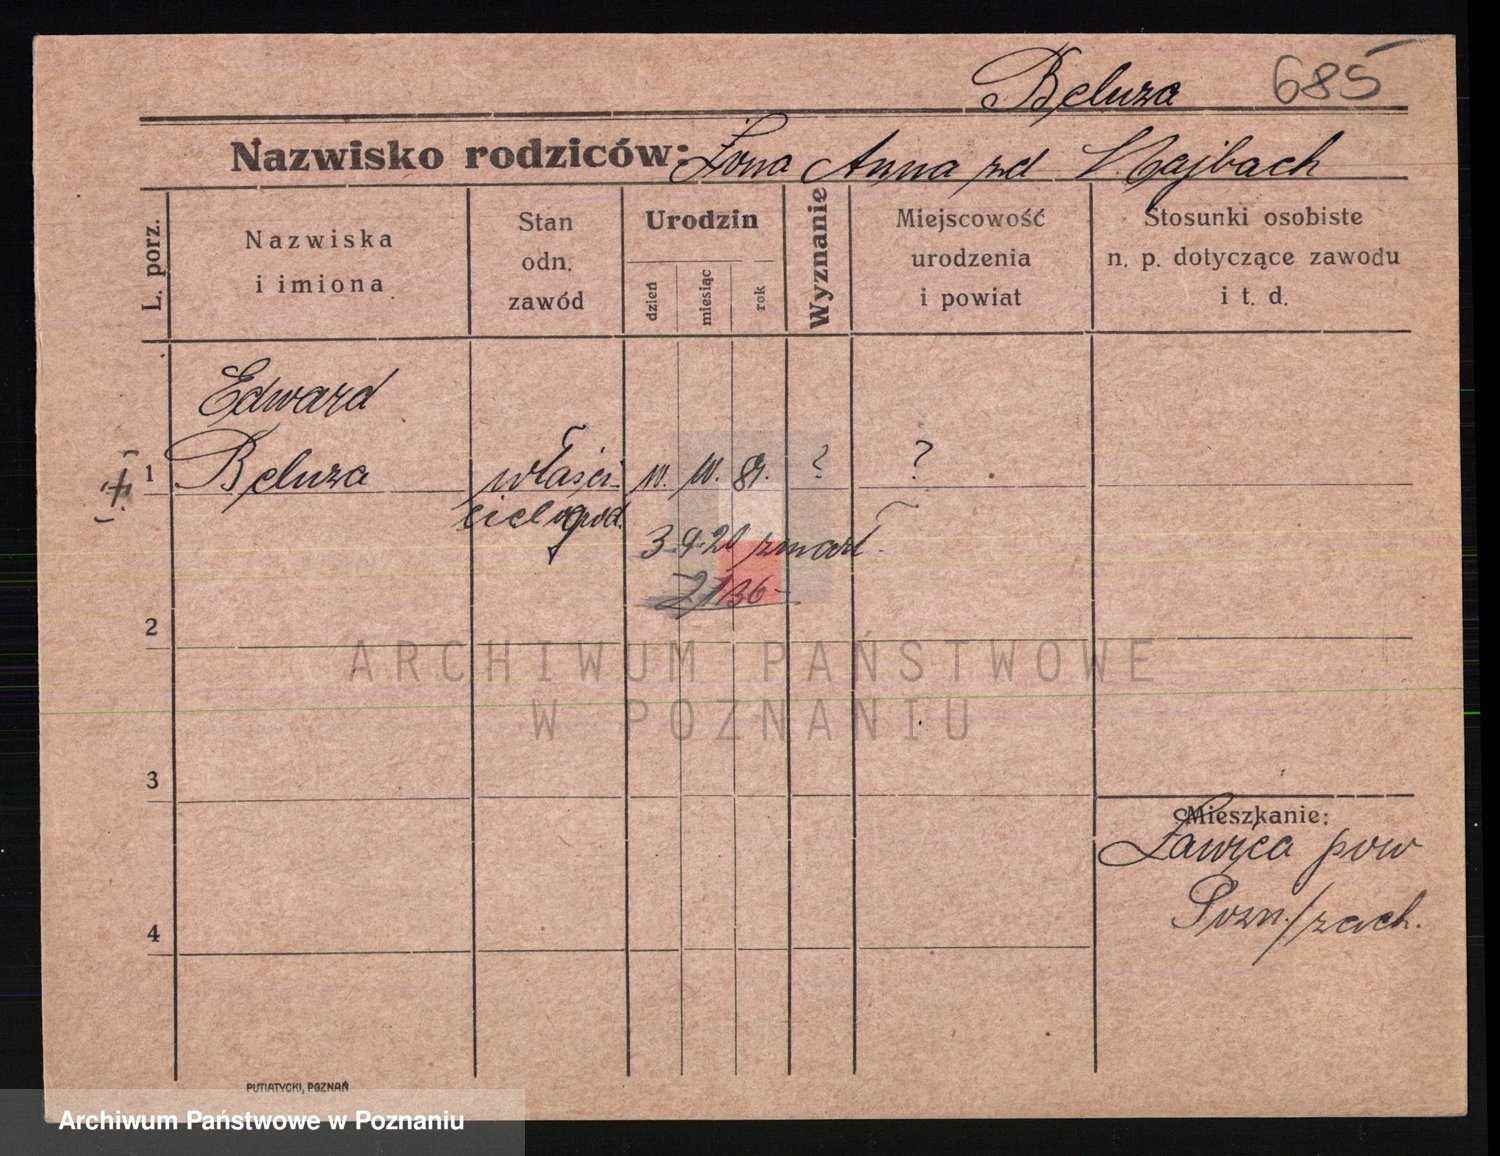 Beluza 685
Nazwisko rodziców: Żona Anna zd Najbach
L. porz.
Nazwiska
i imiona
Stan
odn.
zawód
Urodzin
dzień
miesiąc
rok
Wyznanie
Miejscowość
urodzenia
i powiat
Stosunki osobiste
n. p. dotyczące zawodu
i t. d.
Edward
1 Beluza właści- 10. 10. ? ?
ciel ogrod.
3-9-20 zmarł
2
ARCHIWUM PAŃSTWOWE
W POZNANIU
3
Mieszkanie:
Ławica pow
Pozn./zach.
4
PUTIATYCKI, POZNAŃ
Archiwum Państwowe w Poznaniu